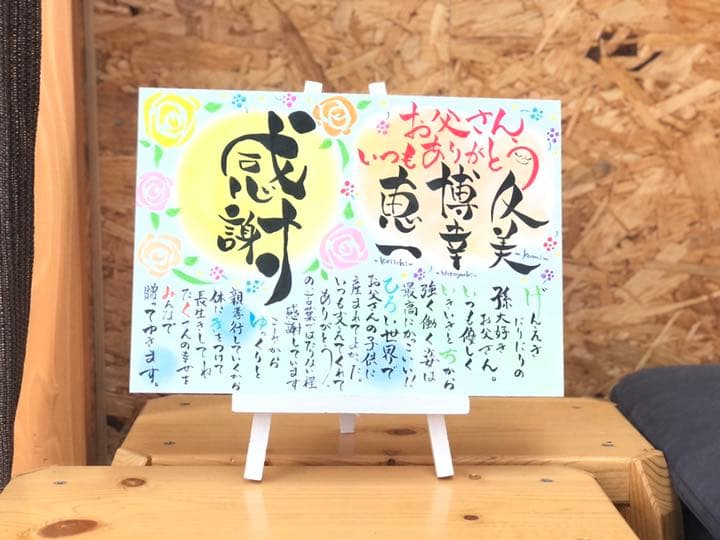 お父さん、
いつもありがとう
久美
-kumi-
博幸
-Hiroyuki-
恵一
-Keiichi-
感謝
げんえき
ばりばりの
孫大好き
お父さん。
いつも優しく
いきいきと ちから
強く働く姿は
最高にかっこいい!!
ひろい世界で
お父さんの子供に
産まれてよかった。
いつも支えてくれて
ありがとう。
の言葉では足りない程
感謝しています
これから
ゆっくりと
親孝行していくから
体にきをつけて
長生きしてね
たくさんの幸せを
みんなで
贈ってゆきます。